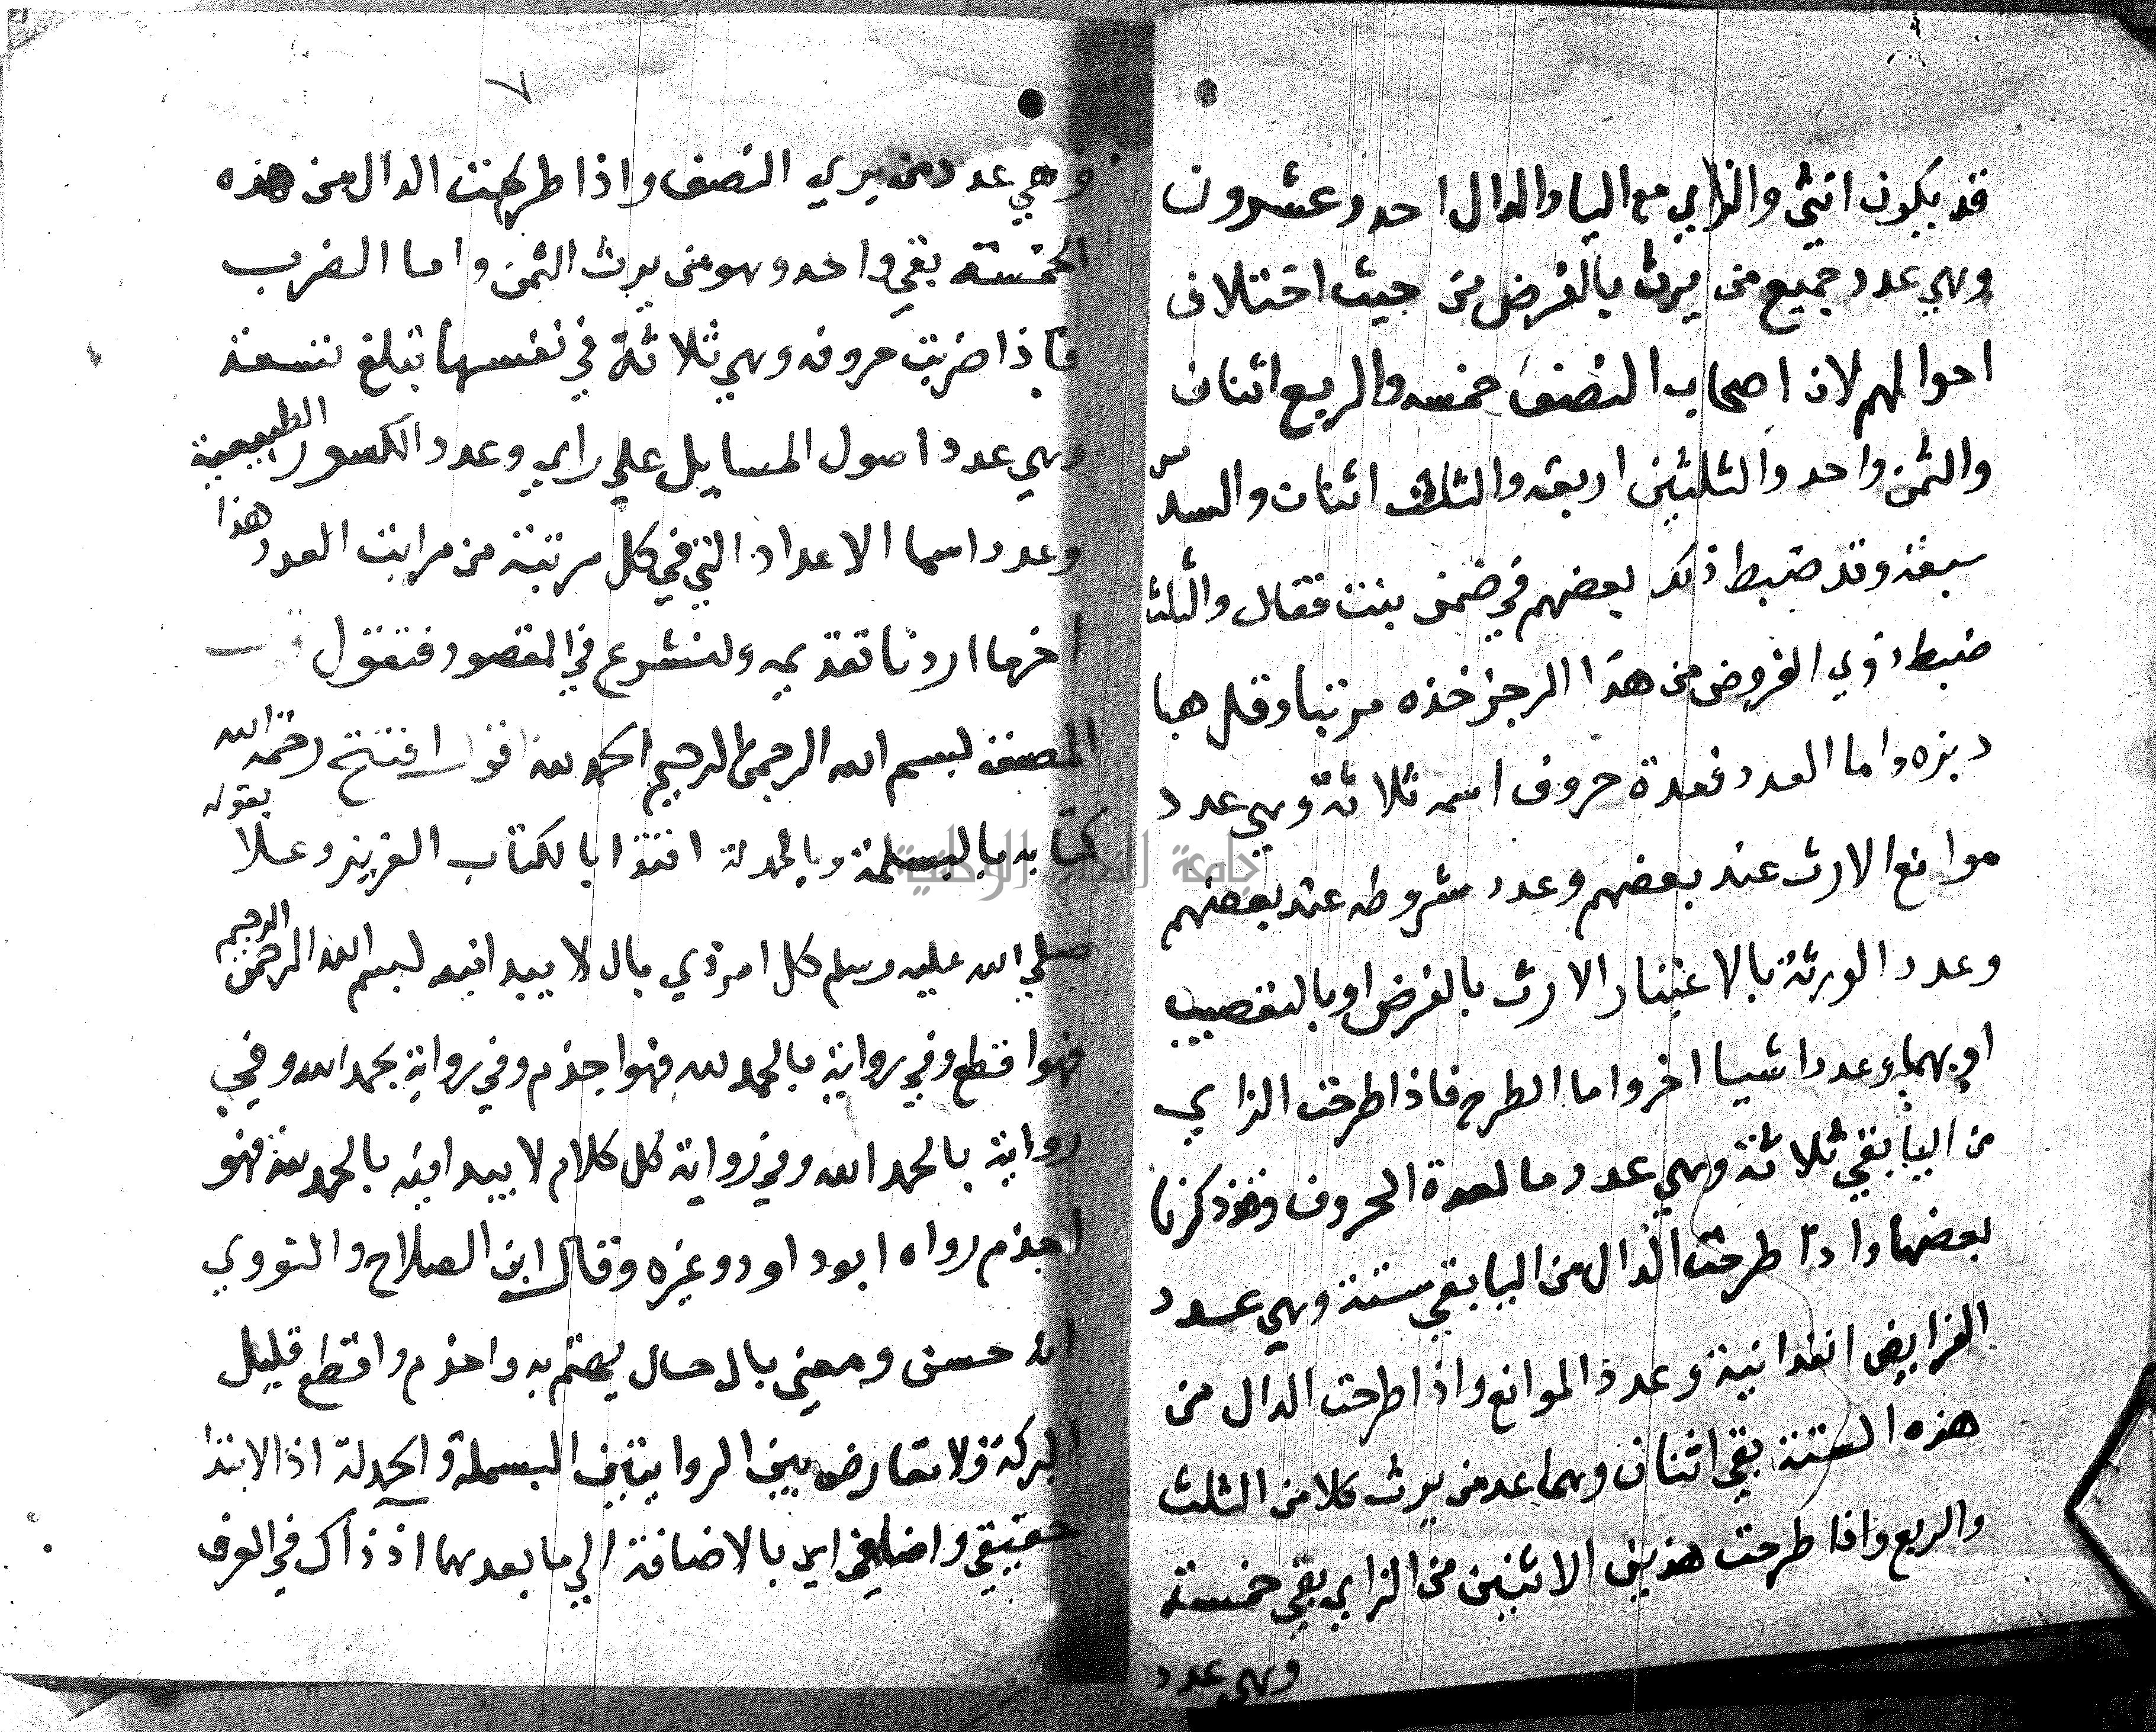 قد يكون انثى والزاي مع اليا والدال احد وعشرون
وهي عدد جميع من يرث بالفرض من حيث اختلاف
احوالهم لان اصحاب النصف خمسه والربع اثنان
والثمن واحد والثلثين اربعه والثلث اثنان والسدس
سبعة وقد ضبط ذلك بعضهم في ضمن بيت فقال والثلث
ضبط ذوي الفروض من هذا الرجز خذه مرتبا وقل هبا
دبزه واما العدد فعدة حروف اسمه ثلاثة وهي عدد
موانع الارث عند بعضهم وعدد شروطه عند بعضهم
وعدد الورثة بالاعتبار الارث بالفرض او بالتعصيب
او بهما وعدد اشيا اخر واما الطرح فاذا طرحت الزاي
من اليا بقي ثلاثة وهي عدد ما لعدة الحروف وقد ذكرنا
بعضها واذا طرحت الدال من اليا بقي ستة وهي عدد
الفرايض القرانية وعدد الموانع واذا طرحت الدال من
هذه الستة بقي اثنان وهما عد من يرث كلا من الثلث
والربع واذا طرحت هذين الاثنين من الزاي بقي خمسة
وهي عدد
٧
وهي عدد من يري النصف واذا طرحت الدال من هذه
الخمسة بقي واحد وهو من يرث الثمن واما الضرب
فاذا ضربت حروفه وهي ثلاثة في نفسها تبلغ تسعة
وهي عدد اصول المسايل علي راي وعدد الكسور الطبيعية
وعدد اسما الاعداد التي في كل مرتبة من مراتب العدد هذا
اخر ما اردنا تقديمه ولنشرع في المقصود فنقول
المصنف بسم الله الرحمن الرحيم الحمد لله اقول افتتح رحمه الله
كتابه بالبسملة وبالحمدلة اقتدا بالكتاب العزيز وعملا بقوله
صلي الله عليه وسلم كل امر ذي بال لا يبدا فيه ببسم الله الرحمن الرحيم
فهو اقطع وفي رواية بالحمد لله فهو اجذم وفي رواية بحمد الله وفي
رواية بالحمد الله وفي رواية كل كلام لا يبدا فيه بالحمد لله فهو
اجذم رواه ابو داود وغيره وقال ابن الصلاح والنووي
انه حسن ومعني بال حال يهتم به واجذم واقطع قليل
البركة ولا تعارض بين الروايتين البسملة والحمدلة اذ الابتدا
حقيقي واضافي اي بالاضافة الي ما بعدهما اذ ذاك في العرف
جامعة النجاح الوطنية